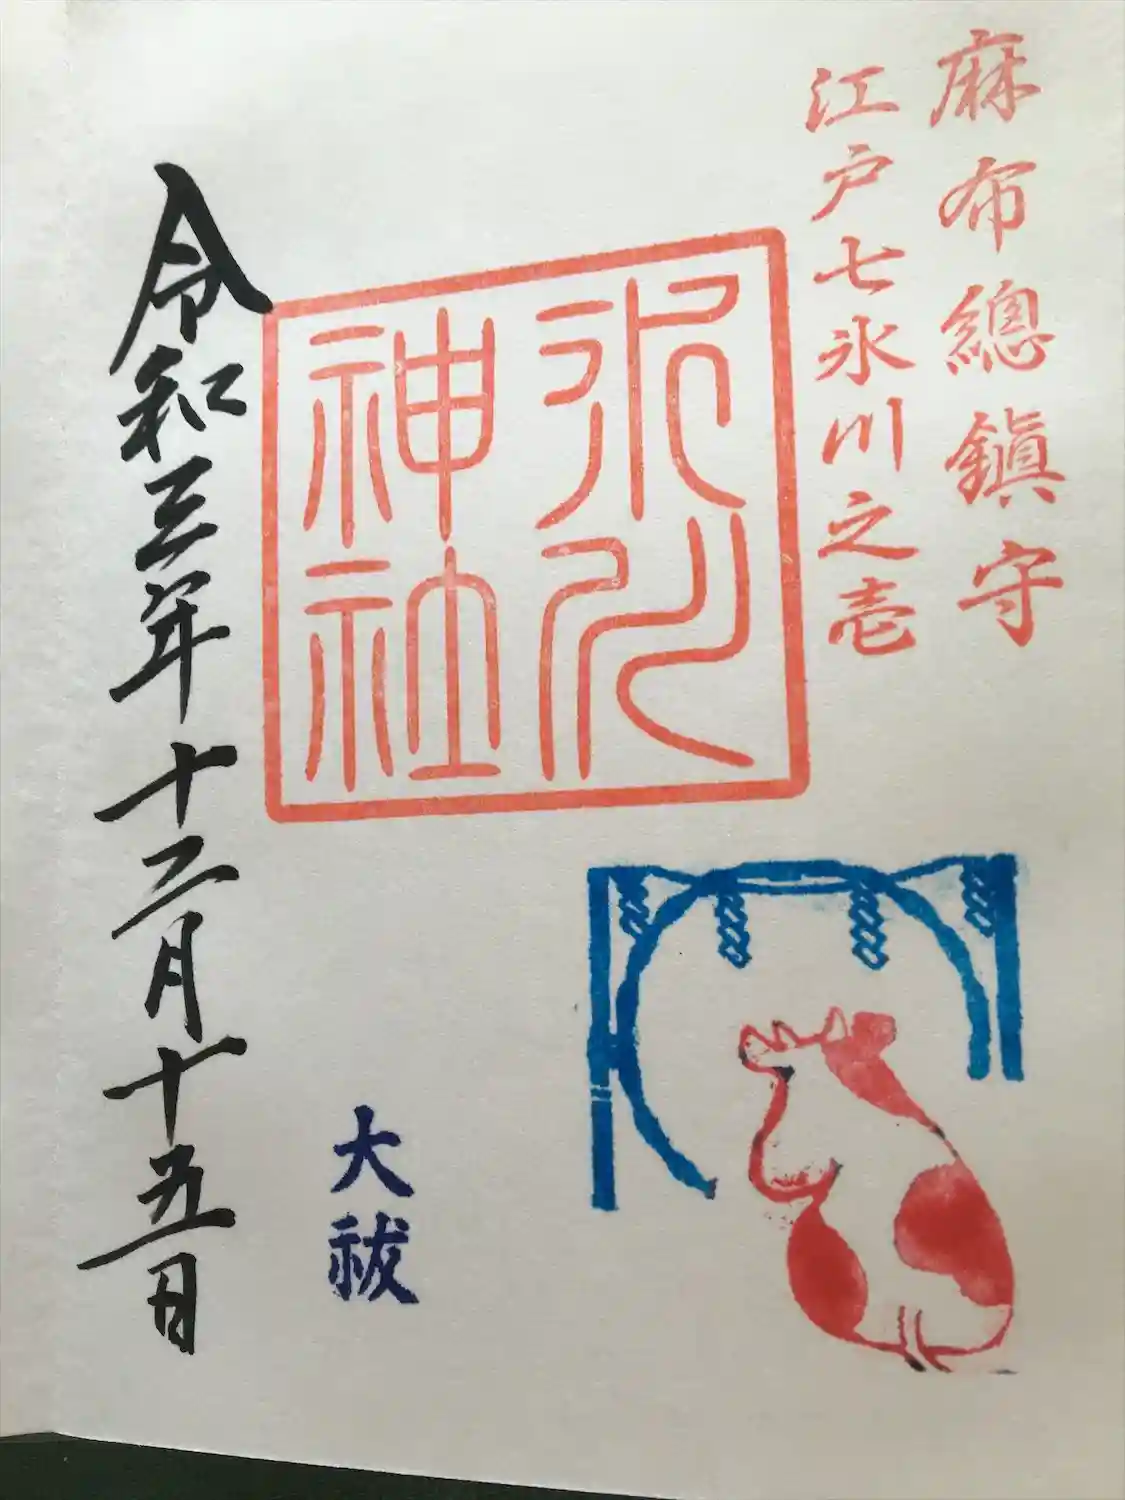 麻布總鎭守
江戸七氷川之壱
氷川
神社
大祓
令和三年十二月十五日